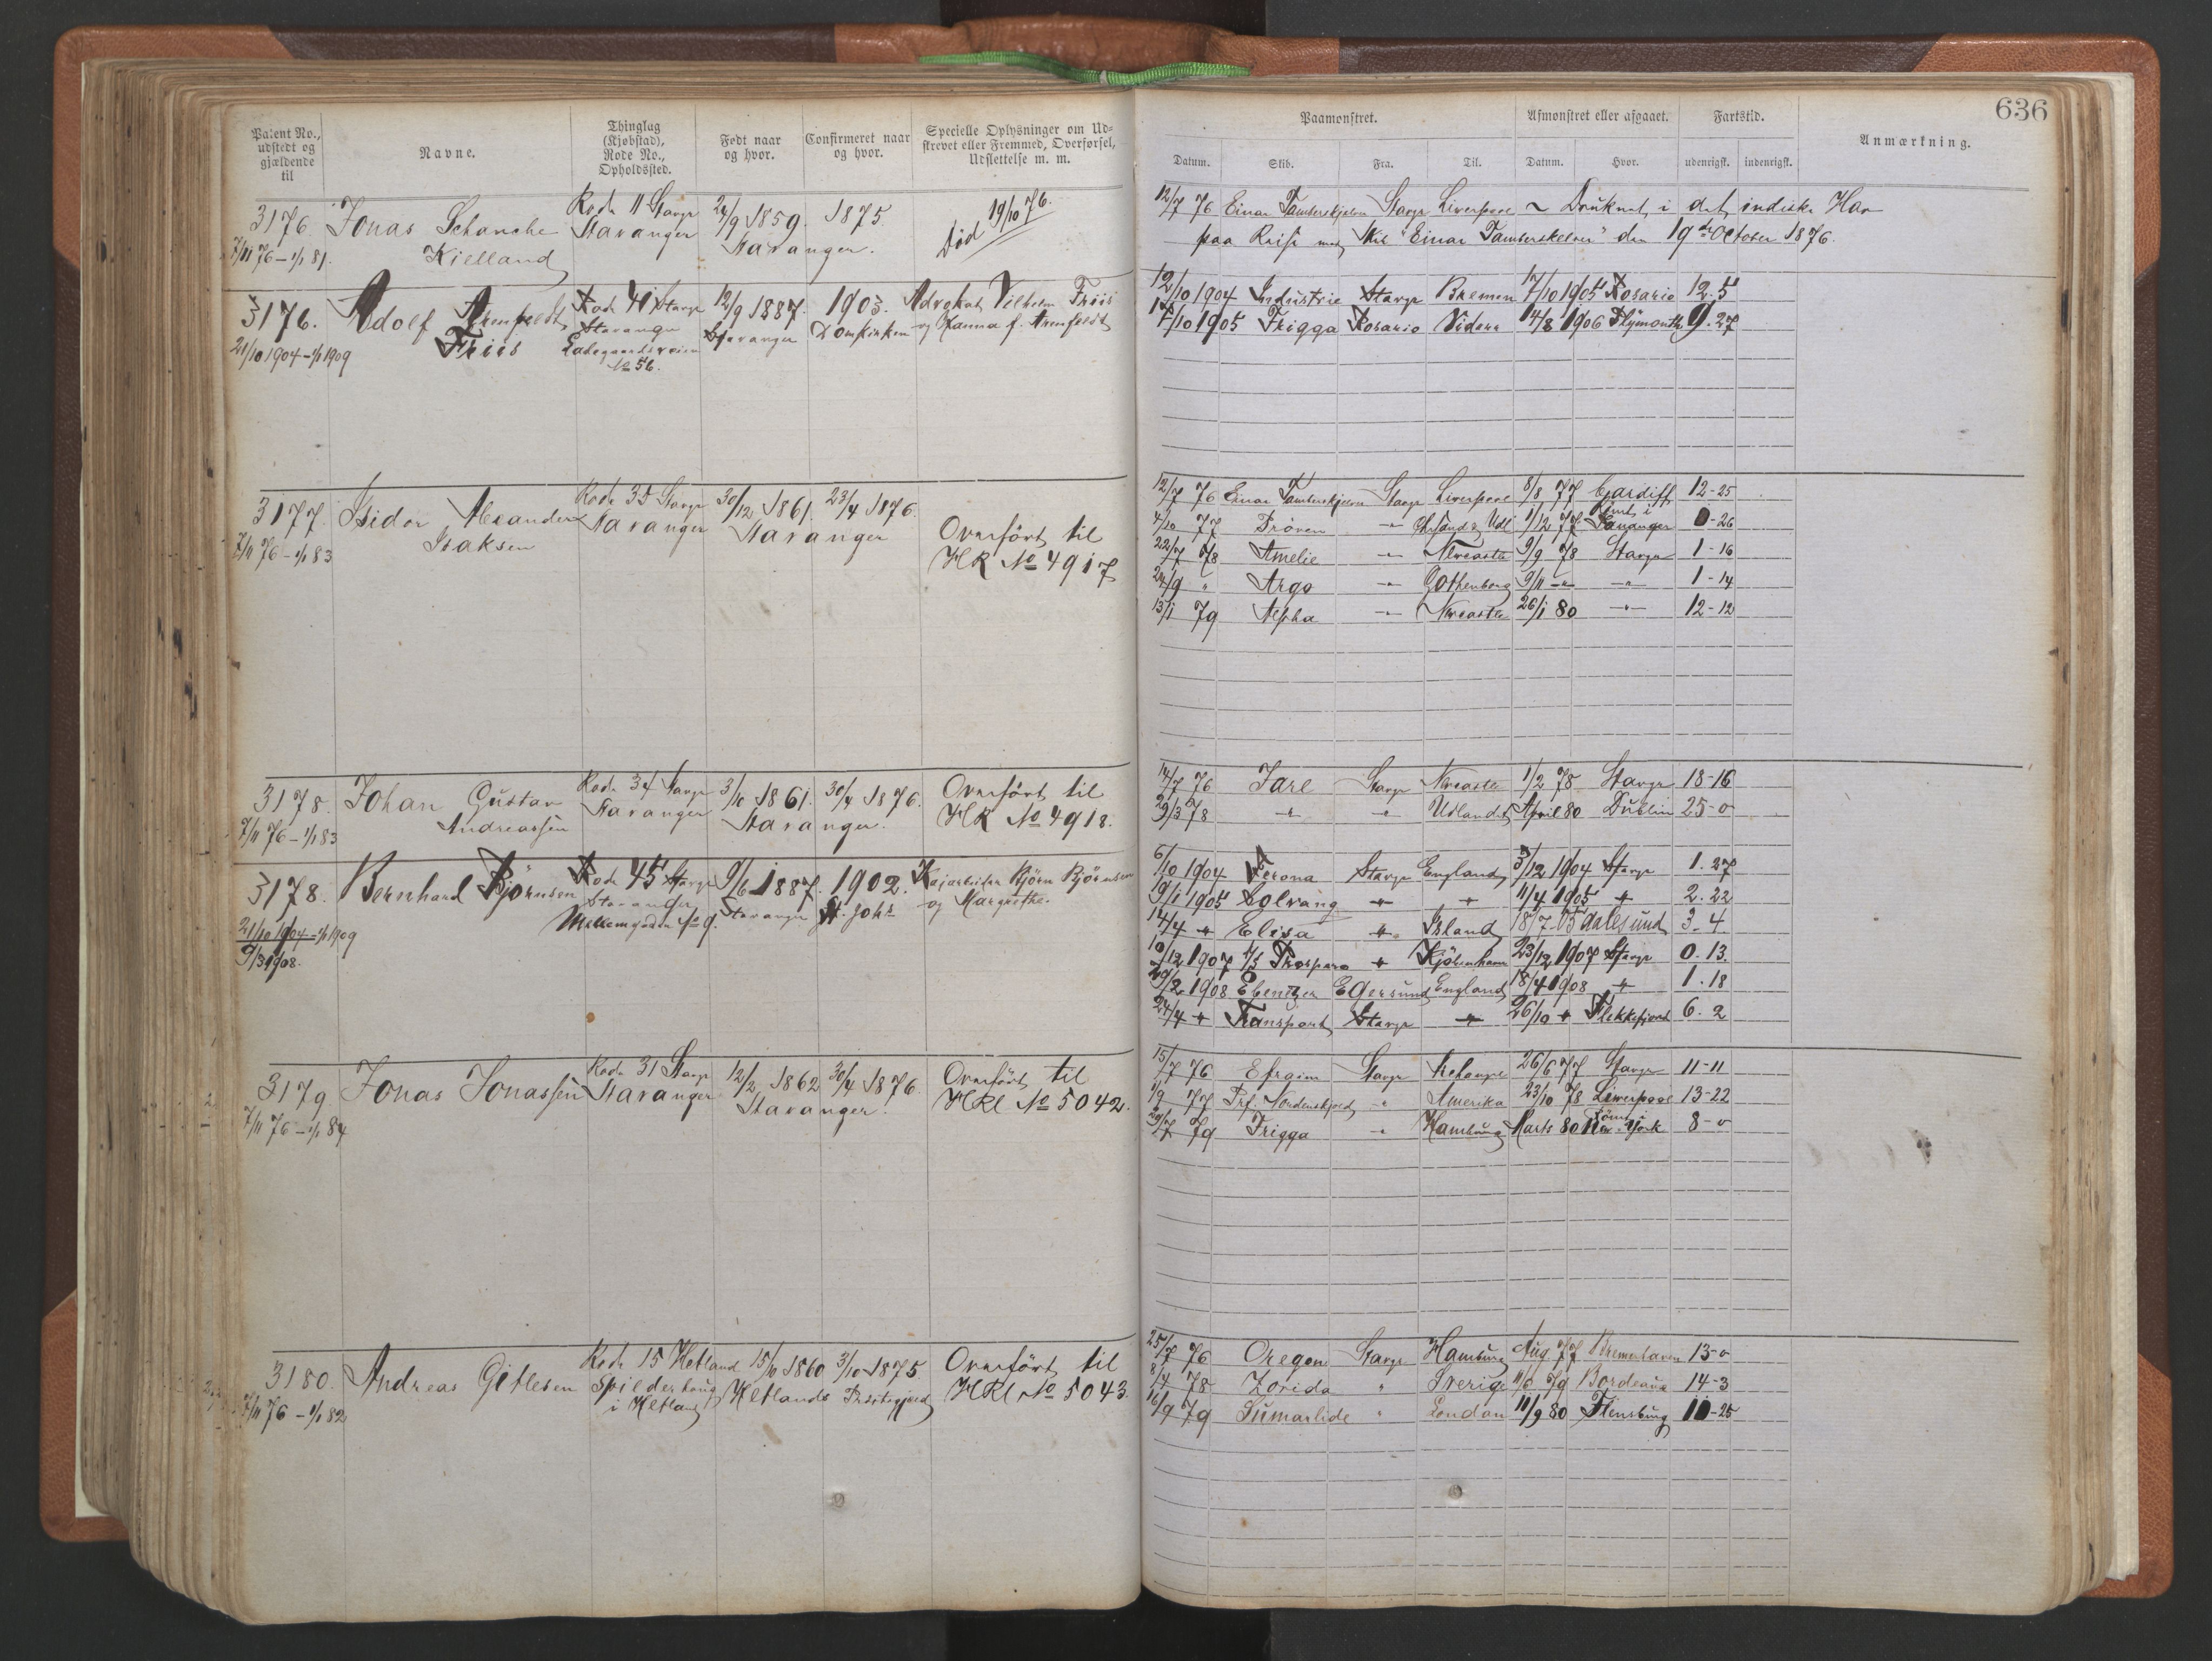 636
Patent No., udstedt og gjældende til
Navne.
Thinglag (Kjøbstad), Rode No., Opholdssted.
Født naar og hvor.
Confirmeret naar og hvor.
Specielle Oplysninger om Udskrevet eller Fremmed, Overførsel, Udslettelse m. m.
Paamønstret.
Afmønstret eller afgaaet.
Fartstid.
Anmærkning.
Datum. Skib. Fra. Til. Datum. Hvor. udenrigsk. indenrigsk.
3176. Jonas Schanche Kielland
7/11 76 – 1/1 81.
Rode 11 Stavgr Stavanger
24/9 1859. Stavanger.
1875.
Død 19/10 76.
12/7 76 Einar Tamberskjelver Stavgr Liverpool ~ Druknet i det indiske Hav
paa Reise med Skib "Einar Tamberskelver" den 19de October 1876.
3176. Adolf Arenfeldt Friis
21/10 1904 – 1/1 1909
Rode 41 Stavgr Stavanger Ladegaardsveien No 56.
12/9 1887. Stavanger
1903. Domkirken
Advokat Vilhelm Friis og Hanna f. Arenfeldt
12/10 1904 Industrie Stavgr Bremen 17/10 1905 Rosario 12. 5
17/10 1905 Frigga Rosario Videre 14/8 1906 Plymouth 9. 27
3177. Isidor Alexander Isaksen
7/11 76 – 1/1 83
Rode 35 Stavgr Stavanger
30/12 1861. Stavanger
23/4 1876.
Overført til HR No 4917
12/7 76 Einar Tamberskjelver Stavgr Liverpool 8/8 77 Cardiff 12-25
4/10 77 Prøven -"- Chrsand & Udl 1/12 77 Rømt i Stavanger 0-26
22/7 78 Amelie -"- Newcastle 9/9 78 Stavgr 1-16
24/9 " Argo -"- Gothenborg 9/11 -"- -"- 1-14
13/1 79 Alpha -"- Newcastle 26/1 80 -"- 12-12
3178. Johan Gustav Andreassen
7/11 76 – 1/1 83
Rode 34 Stavgr Stavanger
3/10 1861. Stavanger.
30/4 1876.
Overført til HR No 4918.
14/7 76 Jarl Stavgr Newcastle 1/2 78 Stavgr 18-16
29/3 78 -"- -"- Udlandet April 80 Dublin 25-0
3178. Bernhard Bjørnsen
21/10 1904 – 1/1 1909
9/3 1908.
Rode 45 Stavgr Stavanger Mellemgaden No 9.
9/6 1887. Stavanger
1902. St. Joh.
Kajarbeider Bjørn Bjørnsen og Margrethe.
6/10 1904 Verona Stavgr England 3/12 1904 Stavgr 1. 27
19/1 1905 Solvang " " 11/4 1905 " 2. 22
14/4 " Elisa " Island 18/7-05 Aalesund 3. 4
10/12 1907 D/S Prospero " Kjøbenhavn 23/12 1907 Stavgr 0. 13.
29/2 1908 Ebenezer Egersund England 18/4 1908 " 1. 18
24/4 " Transport Stavgr " 26/10 " Flekkefjord 6. 2
3179. Jonas Jonassen
7/11 76 – 1/1 84
Rode 31 Stavgr Stavanger
12/2 1862 Stavanger.
30/4 1876.
Overført til HRl No 5042.
15/7 76 Efraim Stavgr 26/6 77 Stavgr 11-11
1/9 77 Prf. Nordenskjold -"- Amerika 23/10 78 Liverpool 13-22
29/7 79 Frigga " Hamburg Marts 80 Rømt i New-York 8-0
3180. Andreas Gitlesen
7/11 76 – 1/1 82
Rode 15 Hetland Spilderhaug i Hetland
15/10 1860 Hetlands Præstegjeld
3/10 1875.
Overført til HRl No 5043.
25/7 76 Oregon Stavgr Hamburg Aug 77 Bremerhaven 13-0
8/4 78 Zorida " Sverige 11/6 79 Bordeaux 14-3
16/9 79 Sumarlide " London 11/9 80 Flensburg 11-25